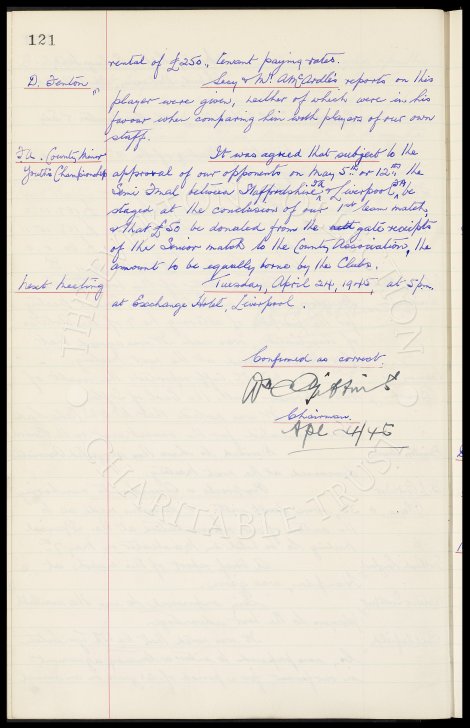 121
rental of £250, tenant paying rates.
D. Fenton Secy & Mr. A. McArdle's reports on this
player were given, neither of which were in his
favour when comparing him with players of our own
staff.
F.A. County Minor It was agreed that subject to the
Youths Championship approval of our opponents on May 5th or 12th the
Semi Final between Staffordshire F.A. & Liverpool C.F.A. be
staged at the conclusion of our 1st team match,
& that £50 be donated from the gate receipts
of the Senior match to the County Association, the
amount to be equally borne by the Clubs.
Next Meeting Tuesday, April 24, 1945, at 5 p.m.
at Exchange Hotel, Liverpool.
Confirmed as correct.
Wm C Gibbins
Chairman.
Apl 24/45
THE
CHARITABLE TRUST